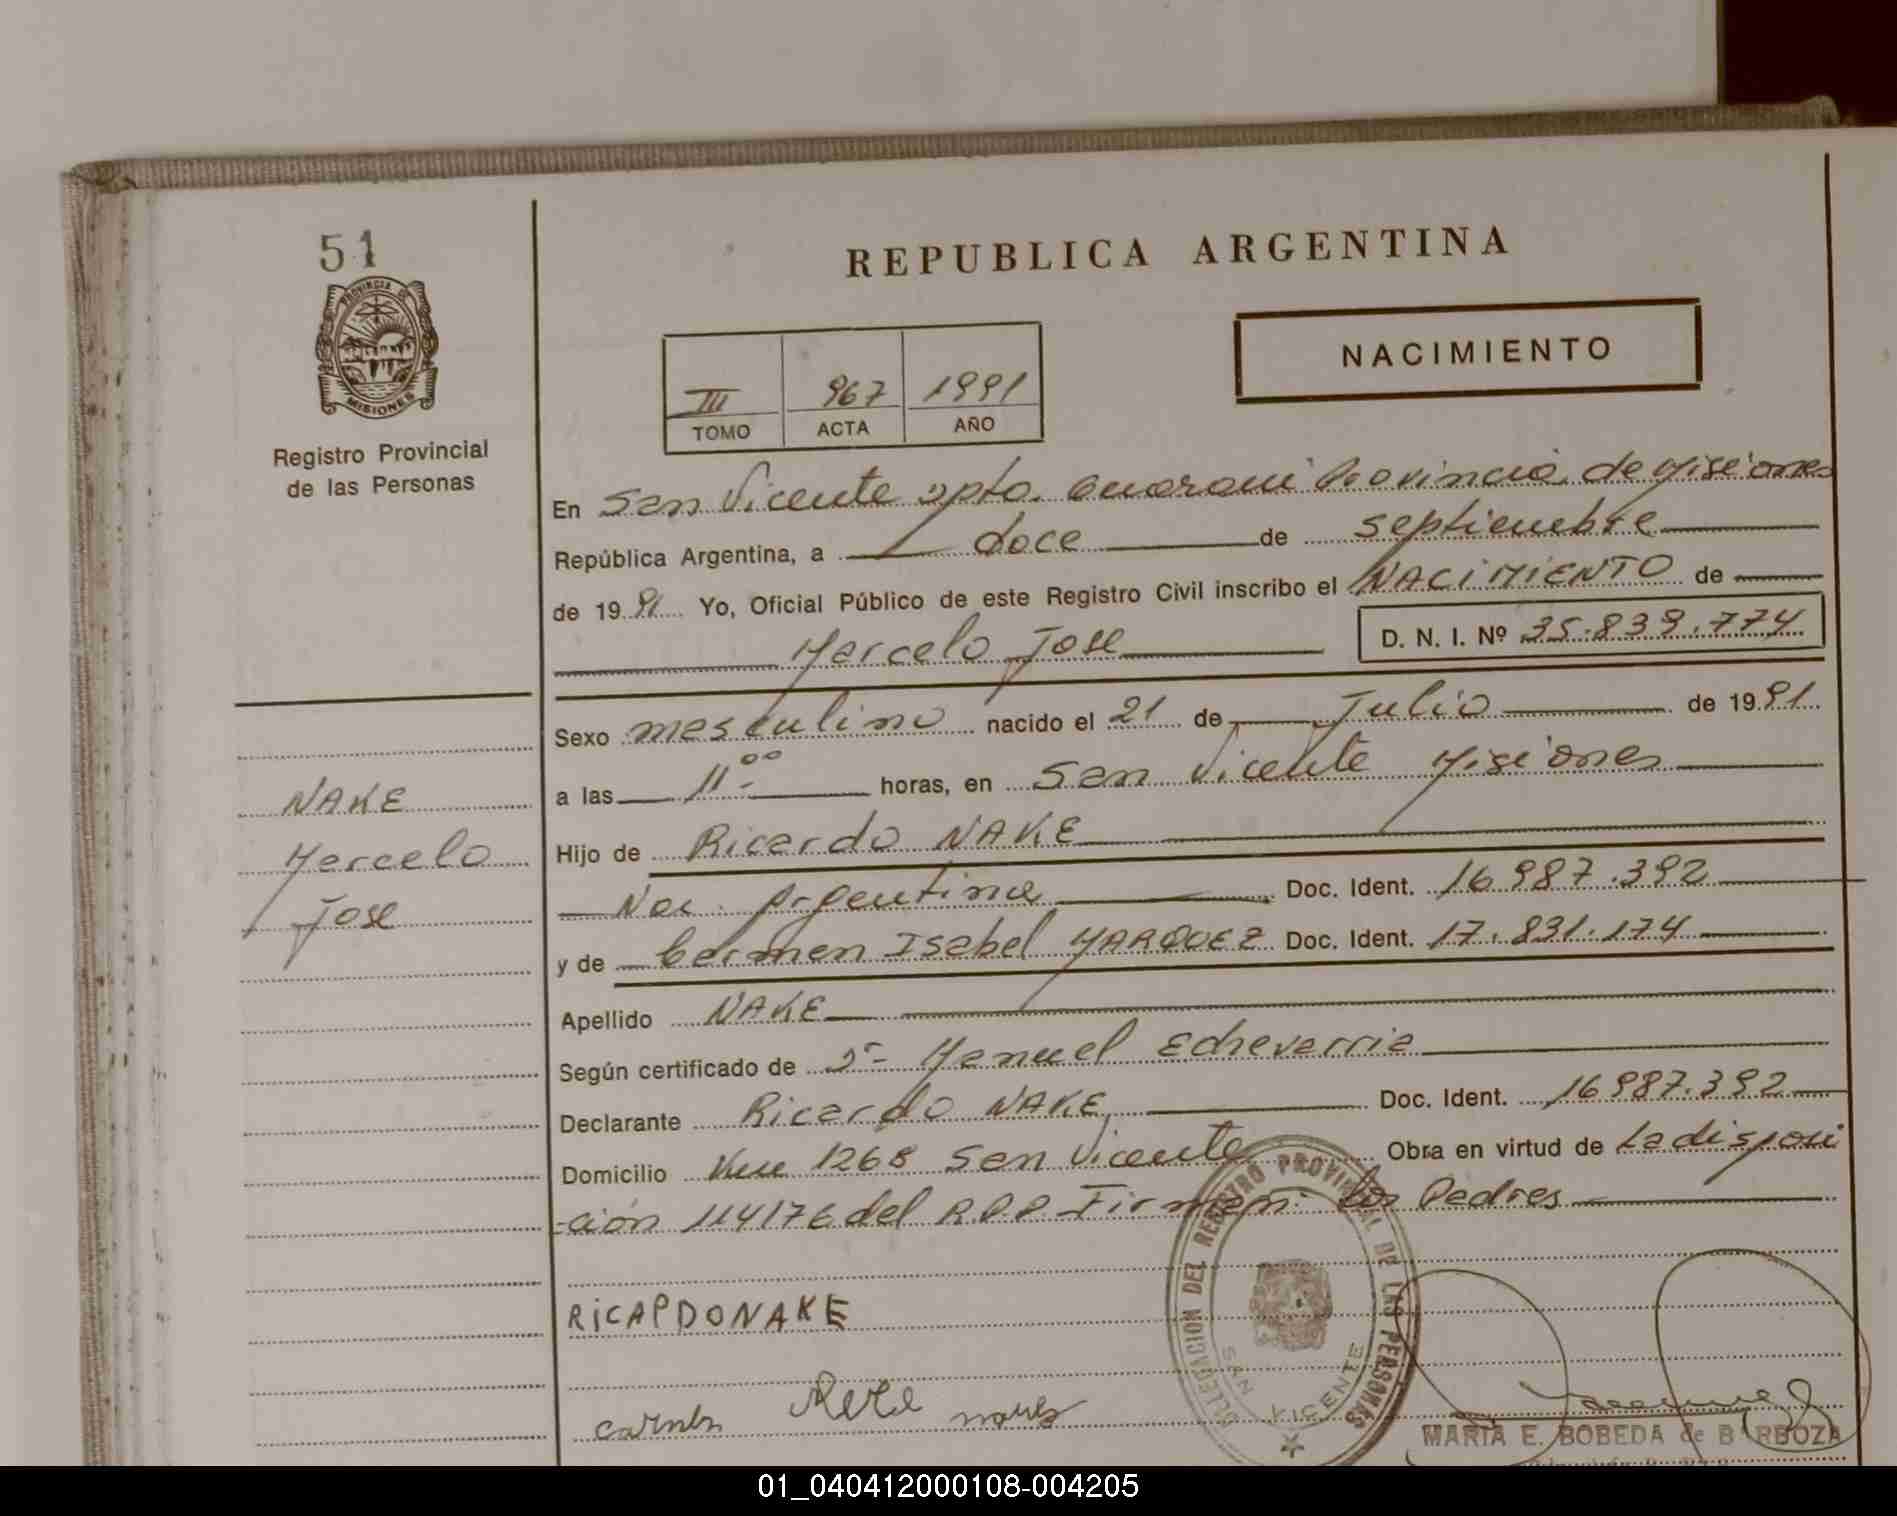 51
PROVINCIA DE
MISIONES
Registro Provincial
de las Personas
REPUBLICA ARGENTINA
NACIMIENTO
III 967 1991
TOMO ACTA AÑO
En San Vicente Dpto. Guarani Provincia de Misiones
República Argentina, a doce de septiembre
de 1991 Yo, Oficial Público de este Registro Civil inscribo el NACIMIENTO de
Marcelo Jose D. N. I. Nº 35.839.774
Sexo masculino nacido el 21 de Julio de 1991
a las 11:00 horas, en San Vicente Misiones
Hijo de Ricardo NAKE
Nac. Argentina Doc. Ident. 16987.392
y de Carmen Isabel MARQUEZ Doc. Ident. 17.831.174
Apellido NAKE
Según certificado de Dr Manuel Echeverria
Declarante Ricardo NAKE Doc. Ident. 16987.392
Domicilio Km 1268 San Vicente Obra en virtud de La disposi
-ción 114176 del R.P.P. Firman: los Padres
NAKE
Marcelo
Jose
RICARDO NAKE
DELEGACION DEL REGISTRO PROVINCIAL DE LAS PERSONAS
SAN VICENTE
MARIA E. BOBEDA de BARBOZA
01_040412000108-004205